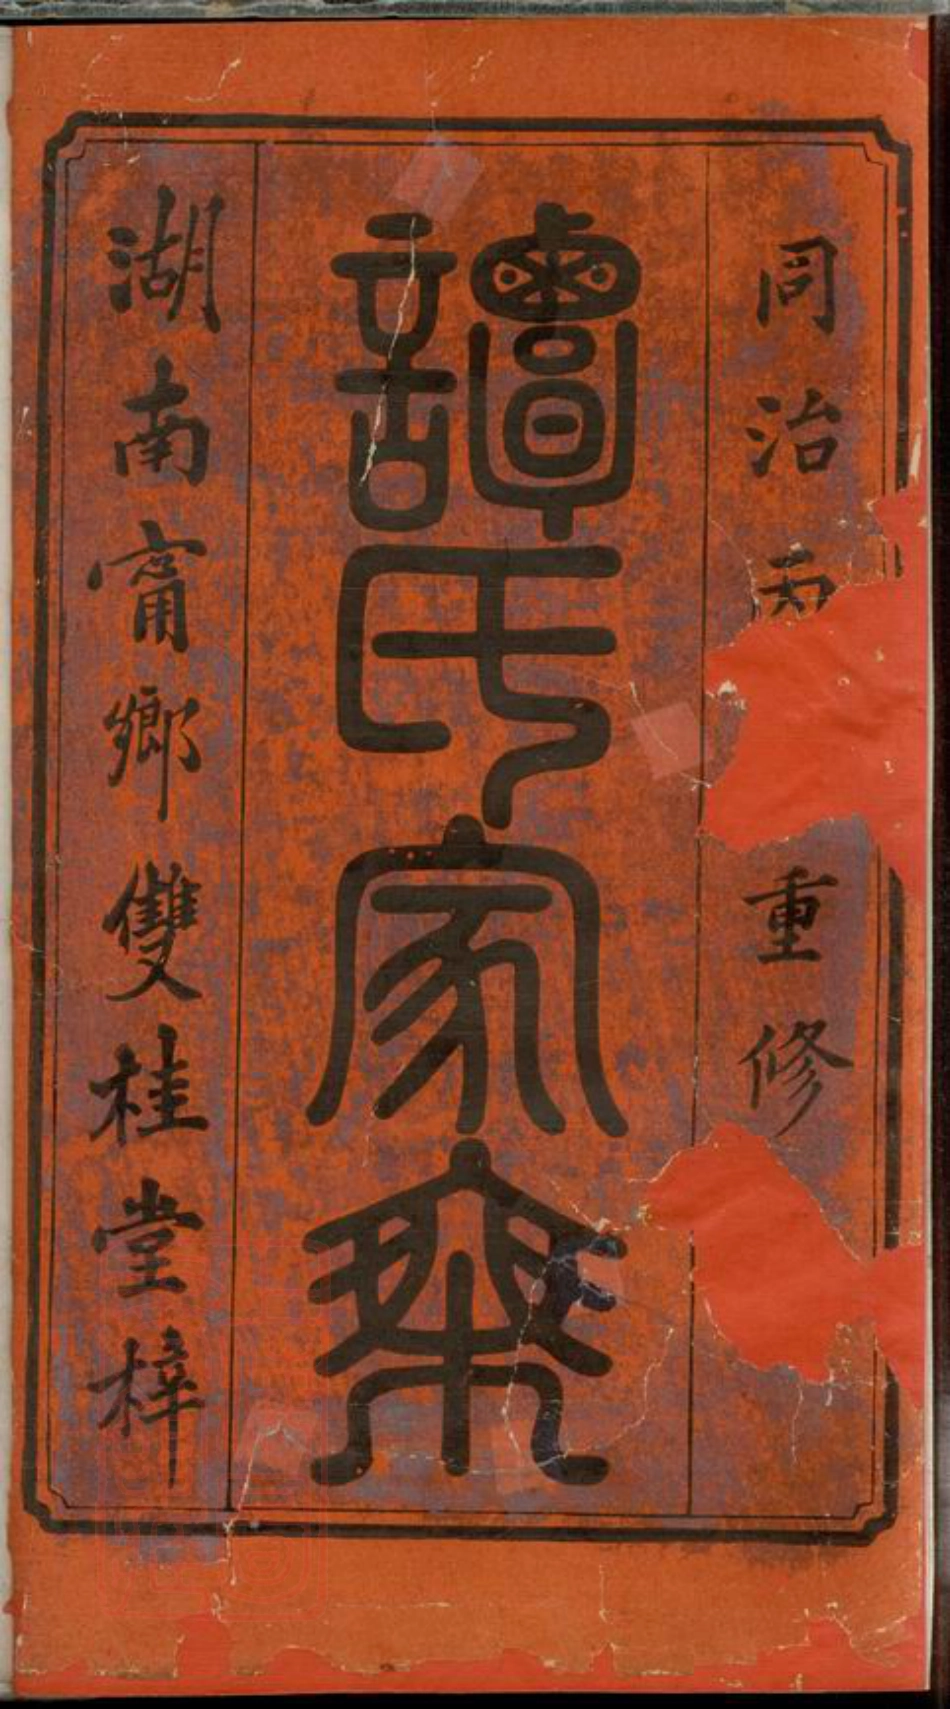 同治丙重修
譚氏家乘
湖南甯鄉雙桂堂梓